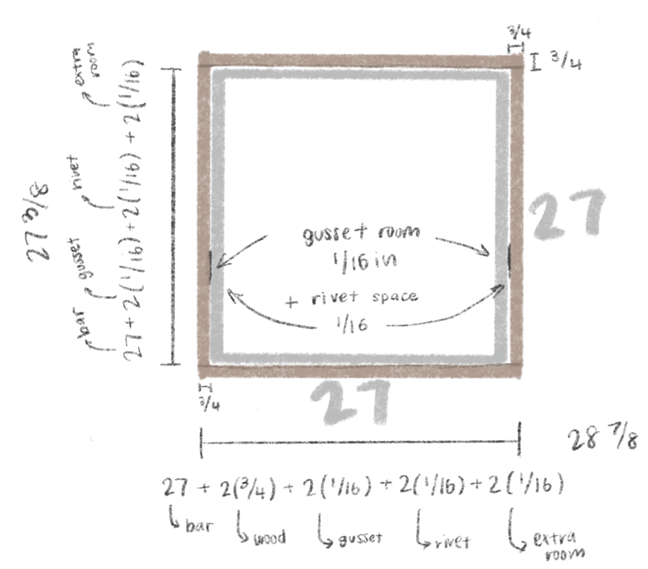 3/4
3/4
27 + 2(1/16) + 2(1/16) + 2(1/16)
bar
gusset
rivet
extra
room
27 3/8
gusset room
1/16 in
+ rivet space
1/16
27
3/4
27
28 7/8
27 + 2(3/4) + 2(1/16) + 2(1/16) + 2(1/16)
bar
wood
gusset
rivet
extra
room